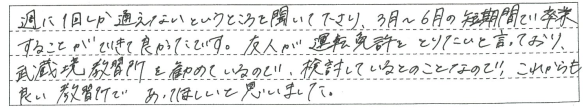 週に1回しか通えないというところを聞いて下さり、3月〜6月の短期間で卒業
することができて良かったです。友人が運転免許をとりたいと言っており、
武蔵境教習所を勧めているので、検討しているとのことなので、これからも
良い教習所であってほしいと思いました。